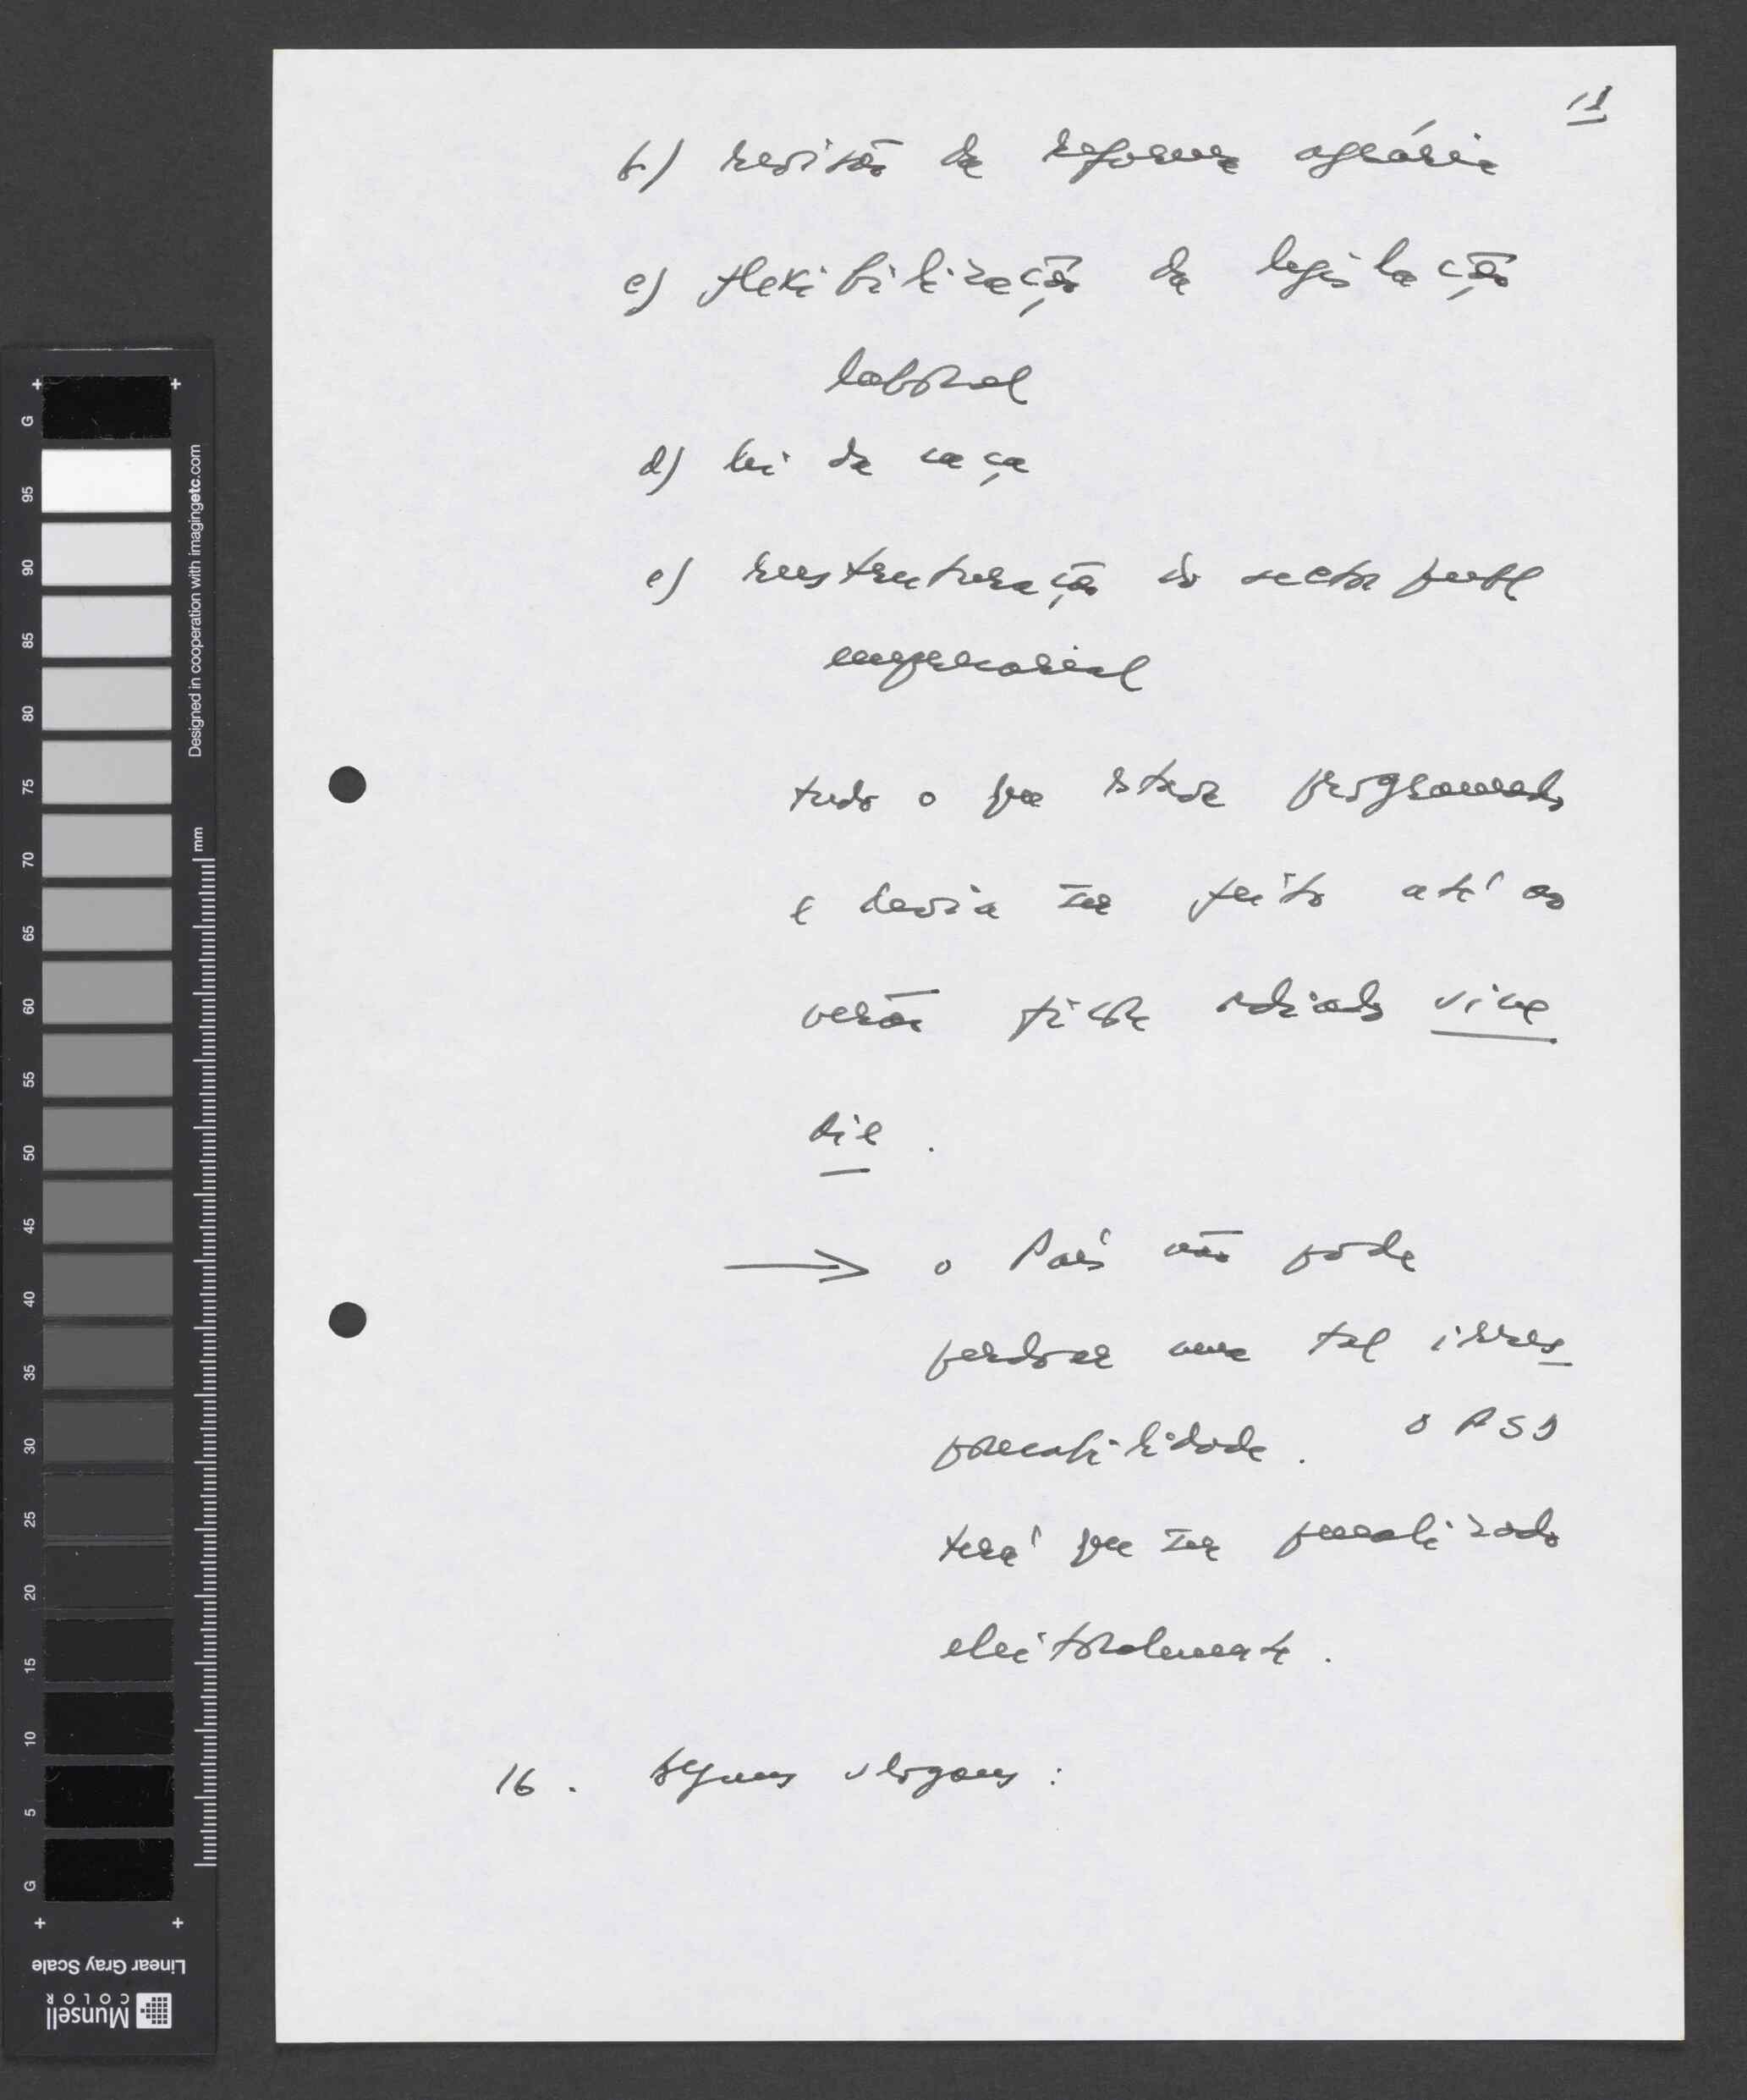 11
b) revisão da reforma agrária
c) flexibilização da legislação
laboral
d) lei da caça
e) reestruturação do sector publ
empresarial
tudo o que estava programado
e devia ser feito até ao
verão ficou adiado sine
die.
→ o País não pode
perdoar uma tal irres-
ponsabilidade. O PSD
terá que ser penalizado
eleitoralmente.
16. Alguns slogans:
G
95
90
85
80
75
70
65
60
55
50
45
40
35
30
25
20
15
10
5
G
mm
Designed in cooperation with imagingetc.com
Linear Gray Scale
Munsell
COLOR